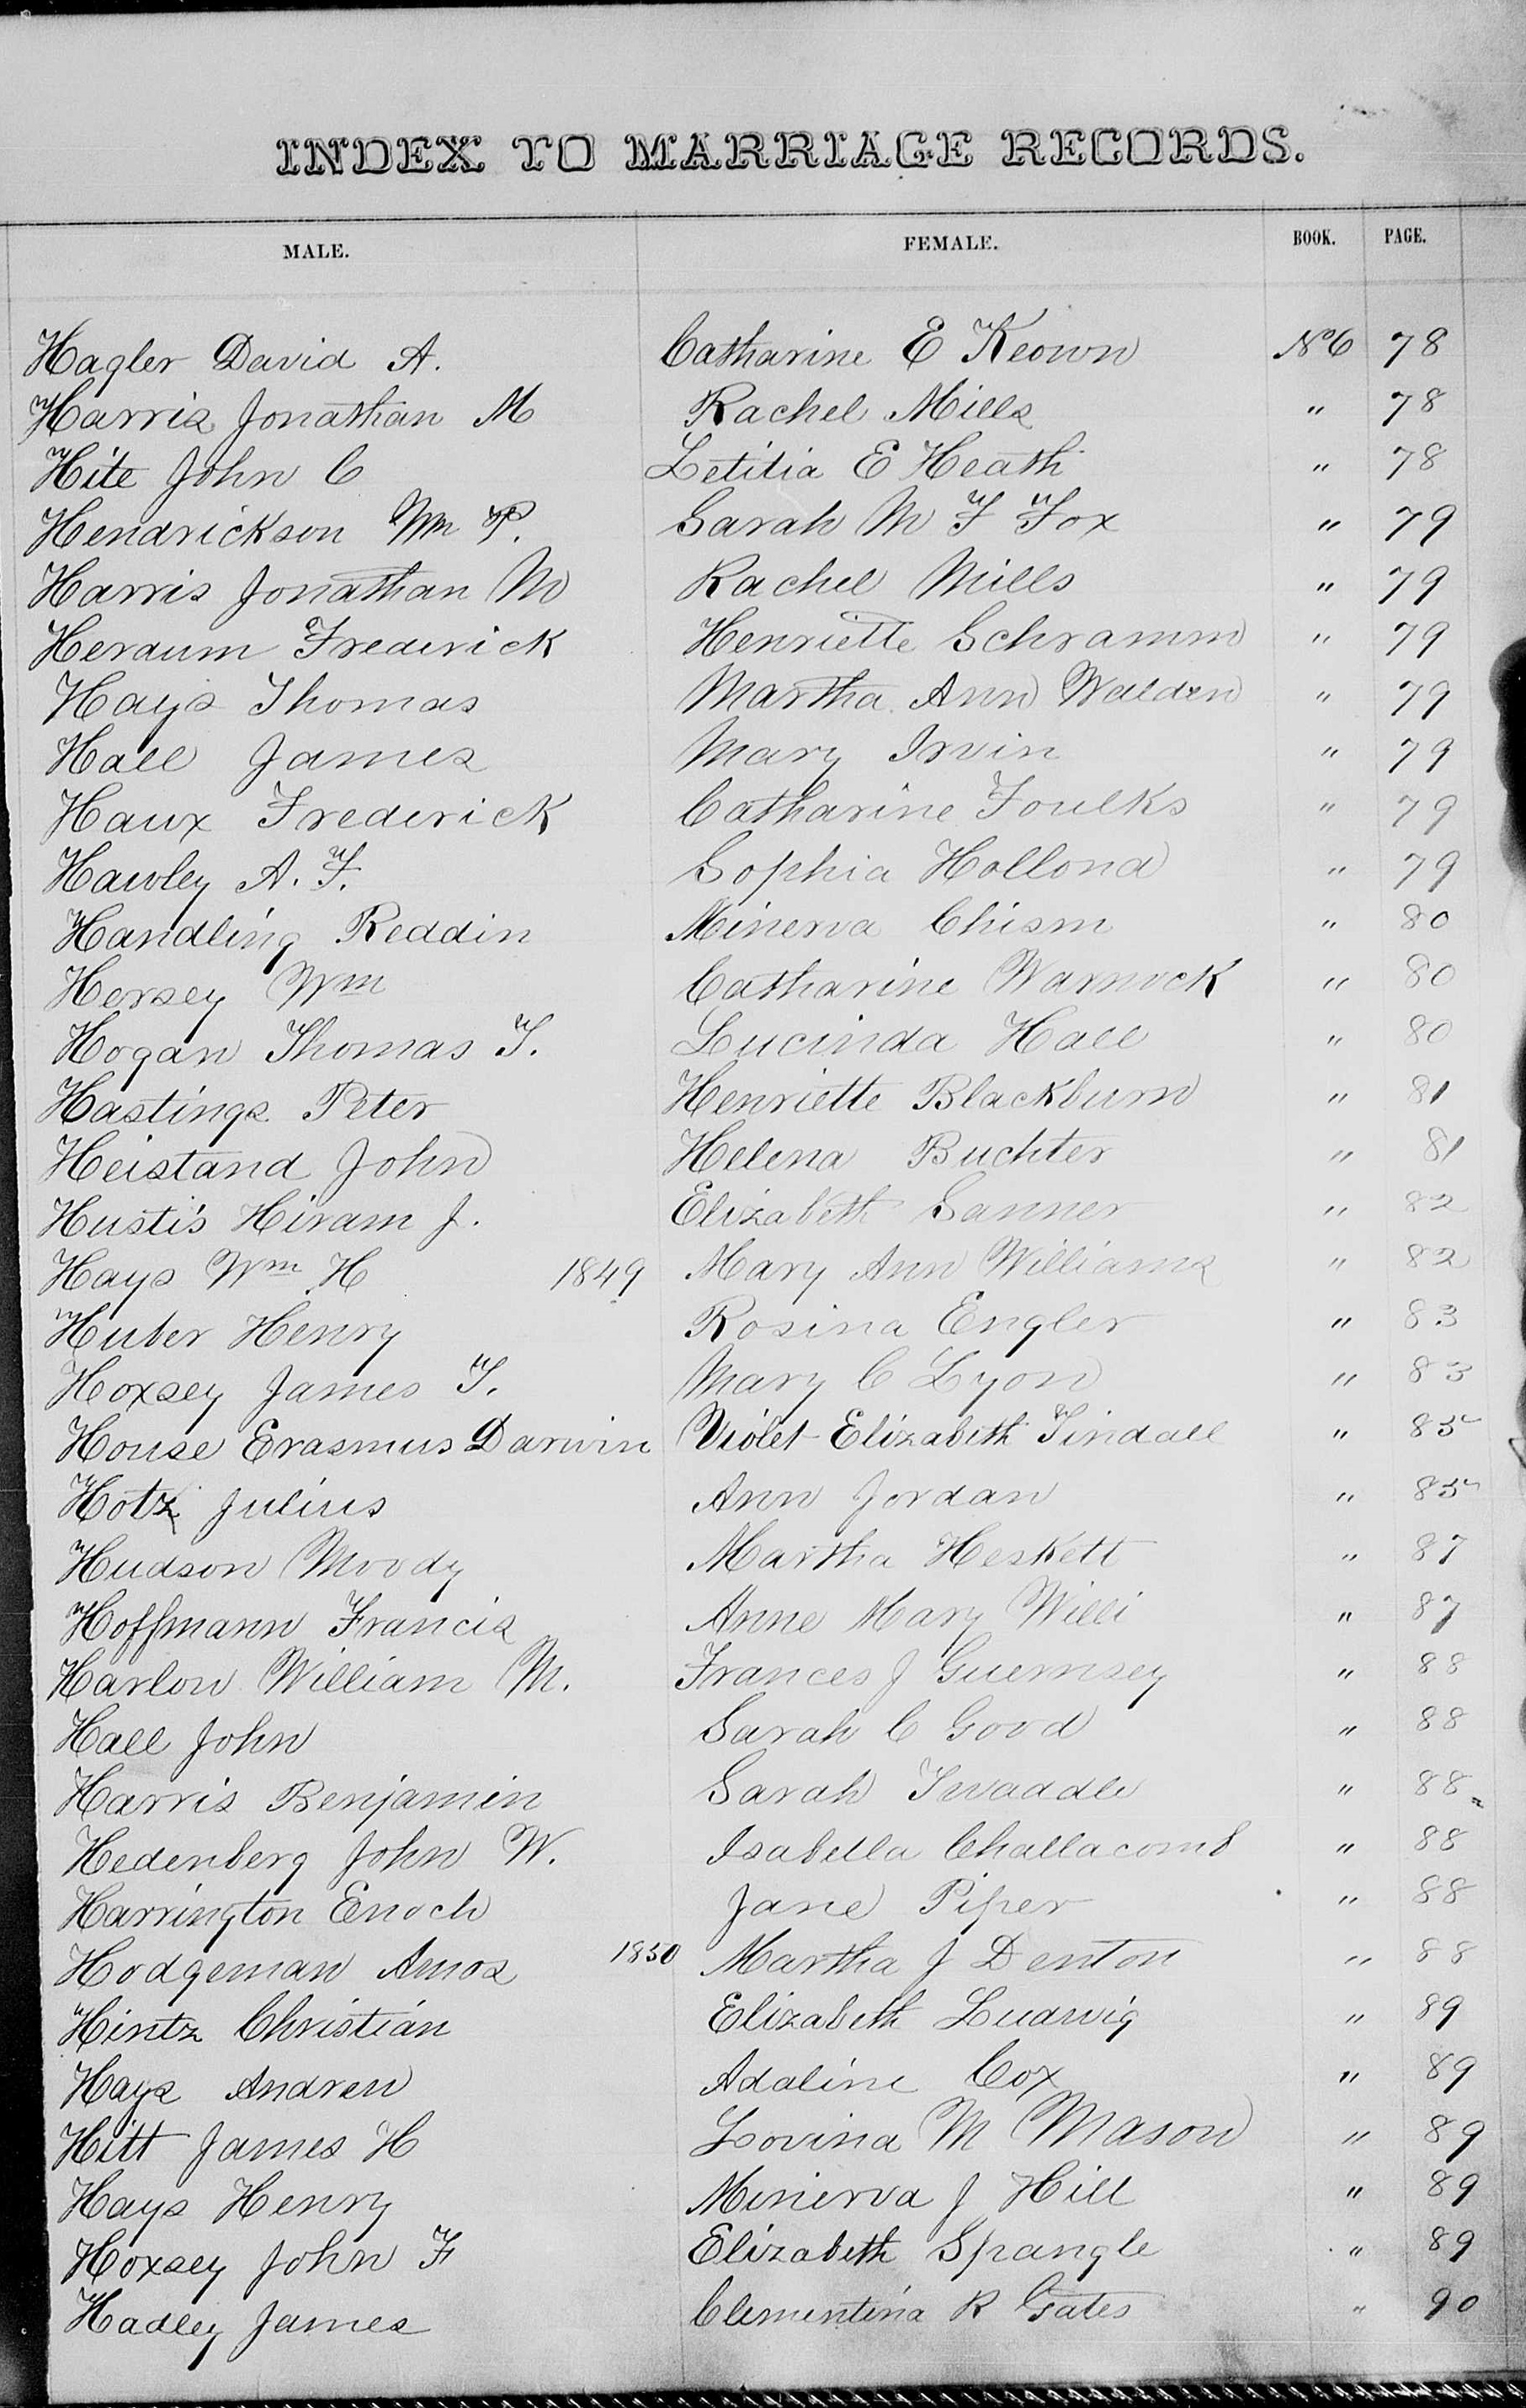 INDEX TO MARRIAGE RECORDS.
MALE. FEMALE. BOOK. PAGE.
Hagler David A. Catharine E Keown No 6 78
Harris Jonathan M Rachel Mills " 78
Hite John C Letitia E Heath " 78
Hendrickson Wm P. Sarah M F Fox " 79
Harris Jonathan M Rachel Mills " 79
Heraum Frederick Henriette Schramm " 79
Hays Thomas Martha Ann Walden " 79
Hall James Mary Irvin " 79
Haux Frederick Catharine Foulks " 79
Hawley A. F. Sophia Hollond " 79
Handling Reddin Minerva Chism " 80
Hersey Wm Catharine Warnock " 80
Hogan Thomas T. Lucinda Hall " 80
Hastings Peter Henriette Blackburn " 81
Heistand John Helena Buchter " 81
Hustis Hiram J. Elizabeth Sanner " 82
Hays Wm H 1849 Mary Ann Williams " 82
Huber Henry Rosina Engler " 83
Hoxsey James T. Mary C Lyon " 83
House Erasmus Darwin Violet Elizabeth Tindall " 85
Hotz Julius Ann Jordan " 85
Hudson Moody Martha Heskett " 87
Hoffmann Francis Anne Mary Willi " 87
Harlow William M. Frances J Guernsey " 88
Hall John Sarah C Good " 88
Harris Benjamin Sarah Twaddle " 88
Hedenberg John W. Isabella Challacomb " 88
Harrington Enoch Jane Piper " 88
Hodgeman Amos 1850 Martha J Denton " 88
Hintz Christian Elizabeth Ludwig " 89
Hays Andrew Adaline Cox " 89
Hitt James H Lovina M Mason " 89
Hays Henry Minerva J Hill " 89
Hoxsey John F Elizabeth Spangle " 89
Hadley James Clementina R Gates " 90